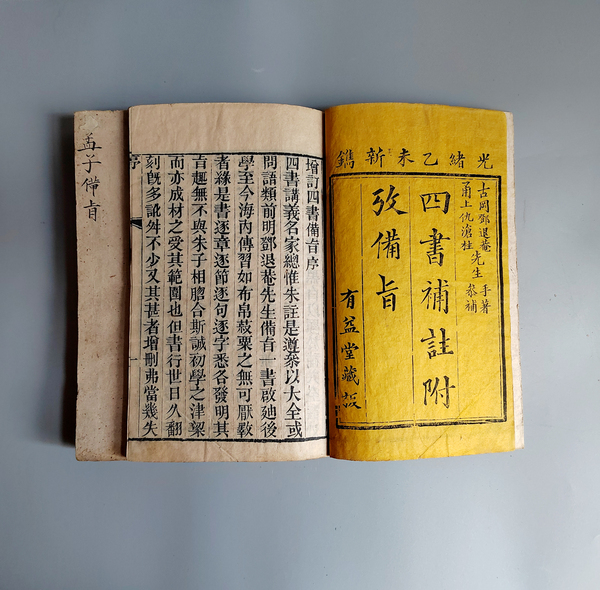 光緒乙未新鐫
古岡鄧退菴先生手著
甬上仇滄柱參補
四書補註附
攷備旨
有益堂藏板
增訂四書備旨序
四書講義名家總惟朱註是遵叅以大全或
問語類前明鄧退菴先生備旨一書啟廸後
學至今海內傳習如布帛菽粟之無可厭斁
者繇是書逐章逐節逐句逐字悉各發明其
旨趣無不與朱子相脗合斯誠初學之津梁
而亦成材之受其範圍也但書行世日久翻
刻旣多訛舛不少又其甚者增刪弗當幾失
序
孟子俻旨